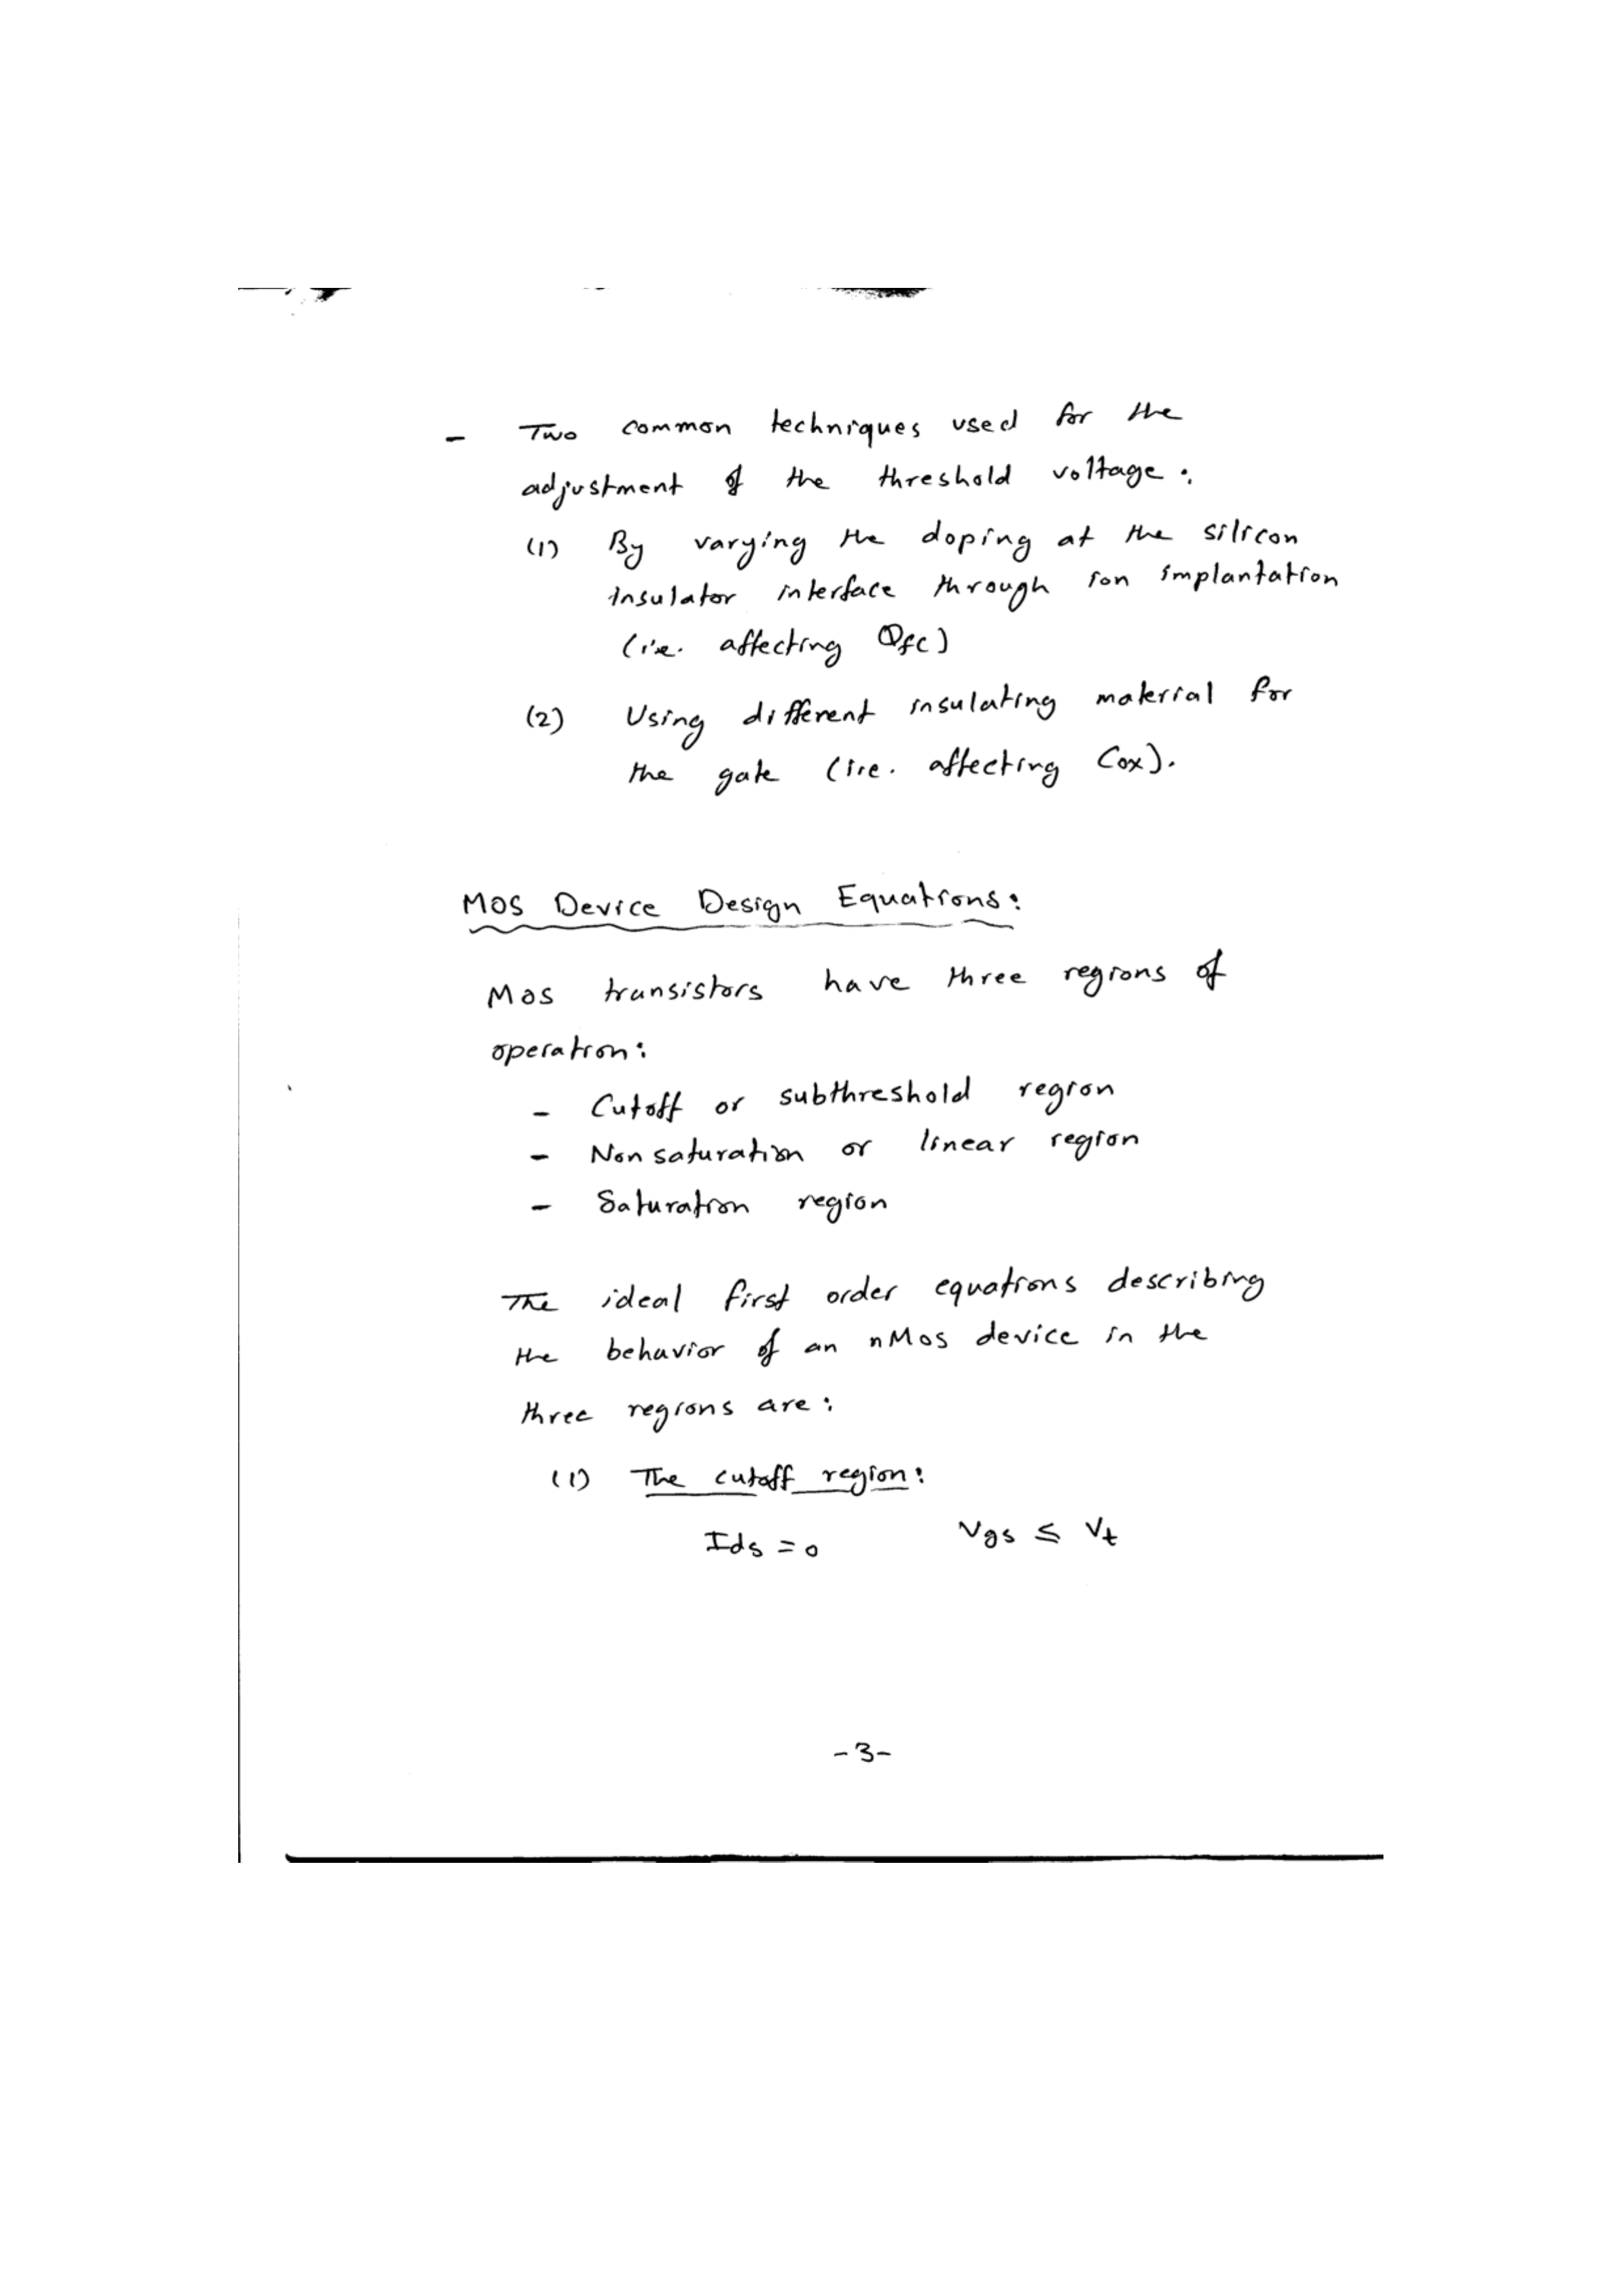 - Two common techniques used for the
adjustment of the threshold voltage:
(1) By varying the doping at the silicon
insulator interface through ion implantation
(i.e. affecting Qfc)
(2) Using different insulating material for
the gate (i.e. affecting Cox).
MOS Device Design Equations:
MOS transistors have three regions of
operation:
- Cutoff or subthreshold region
- Nonsaturation or linear region
- Saturation region
The ideal first order equations describing
the behavior of an nMOS device in the
three regions are:
(1) The cutoff region:
Ids = 0 Vgs ≤ Vt
-3-